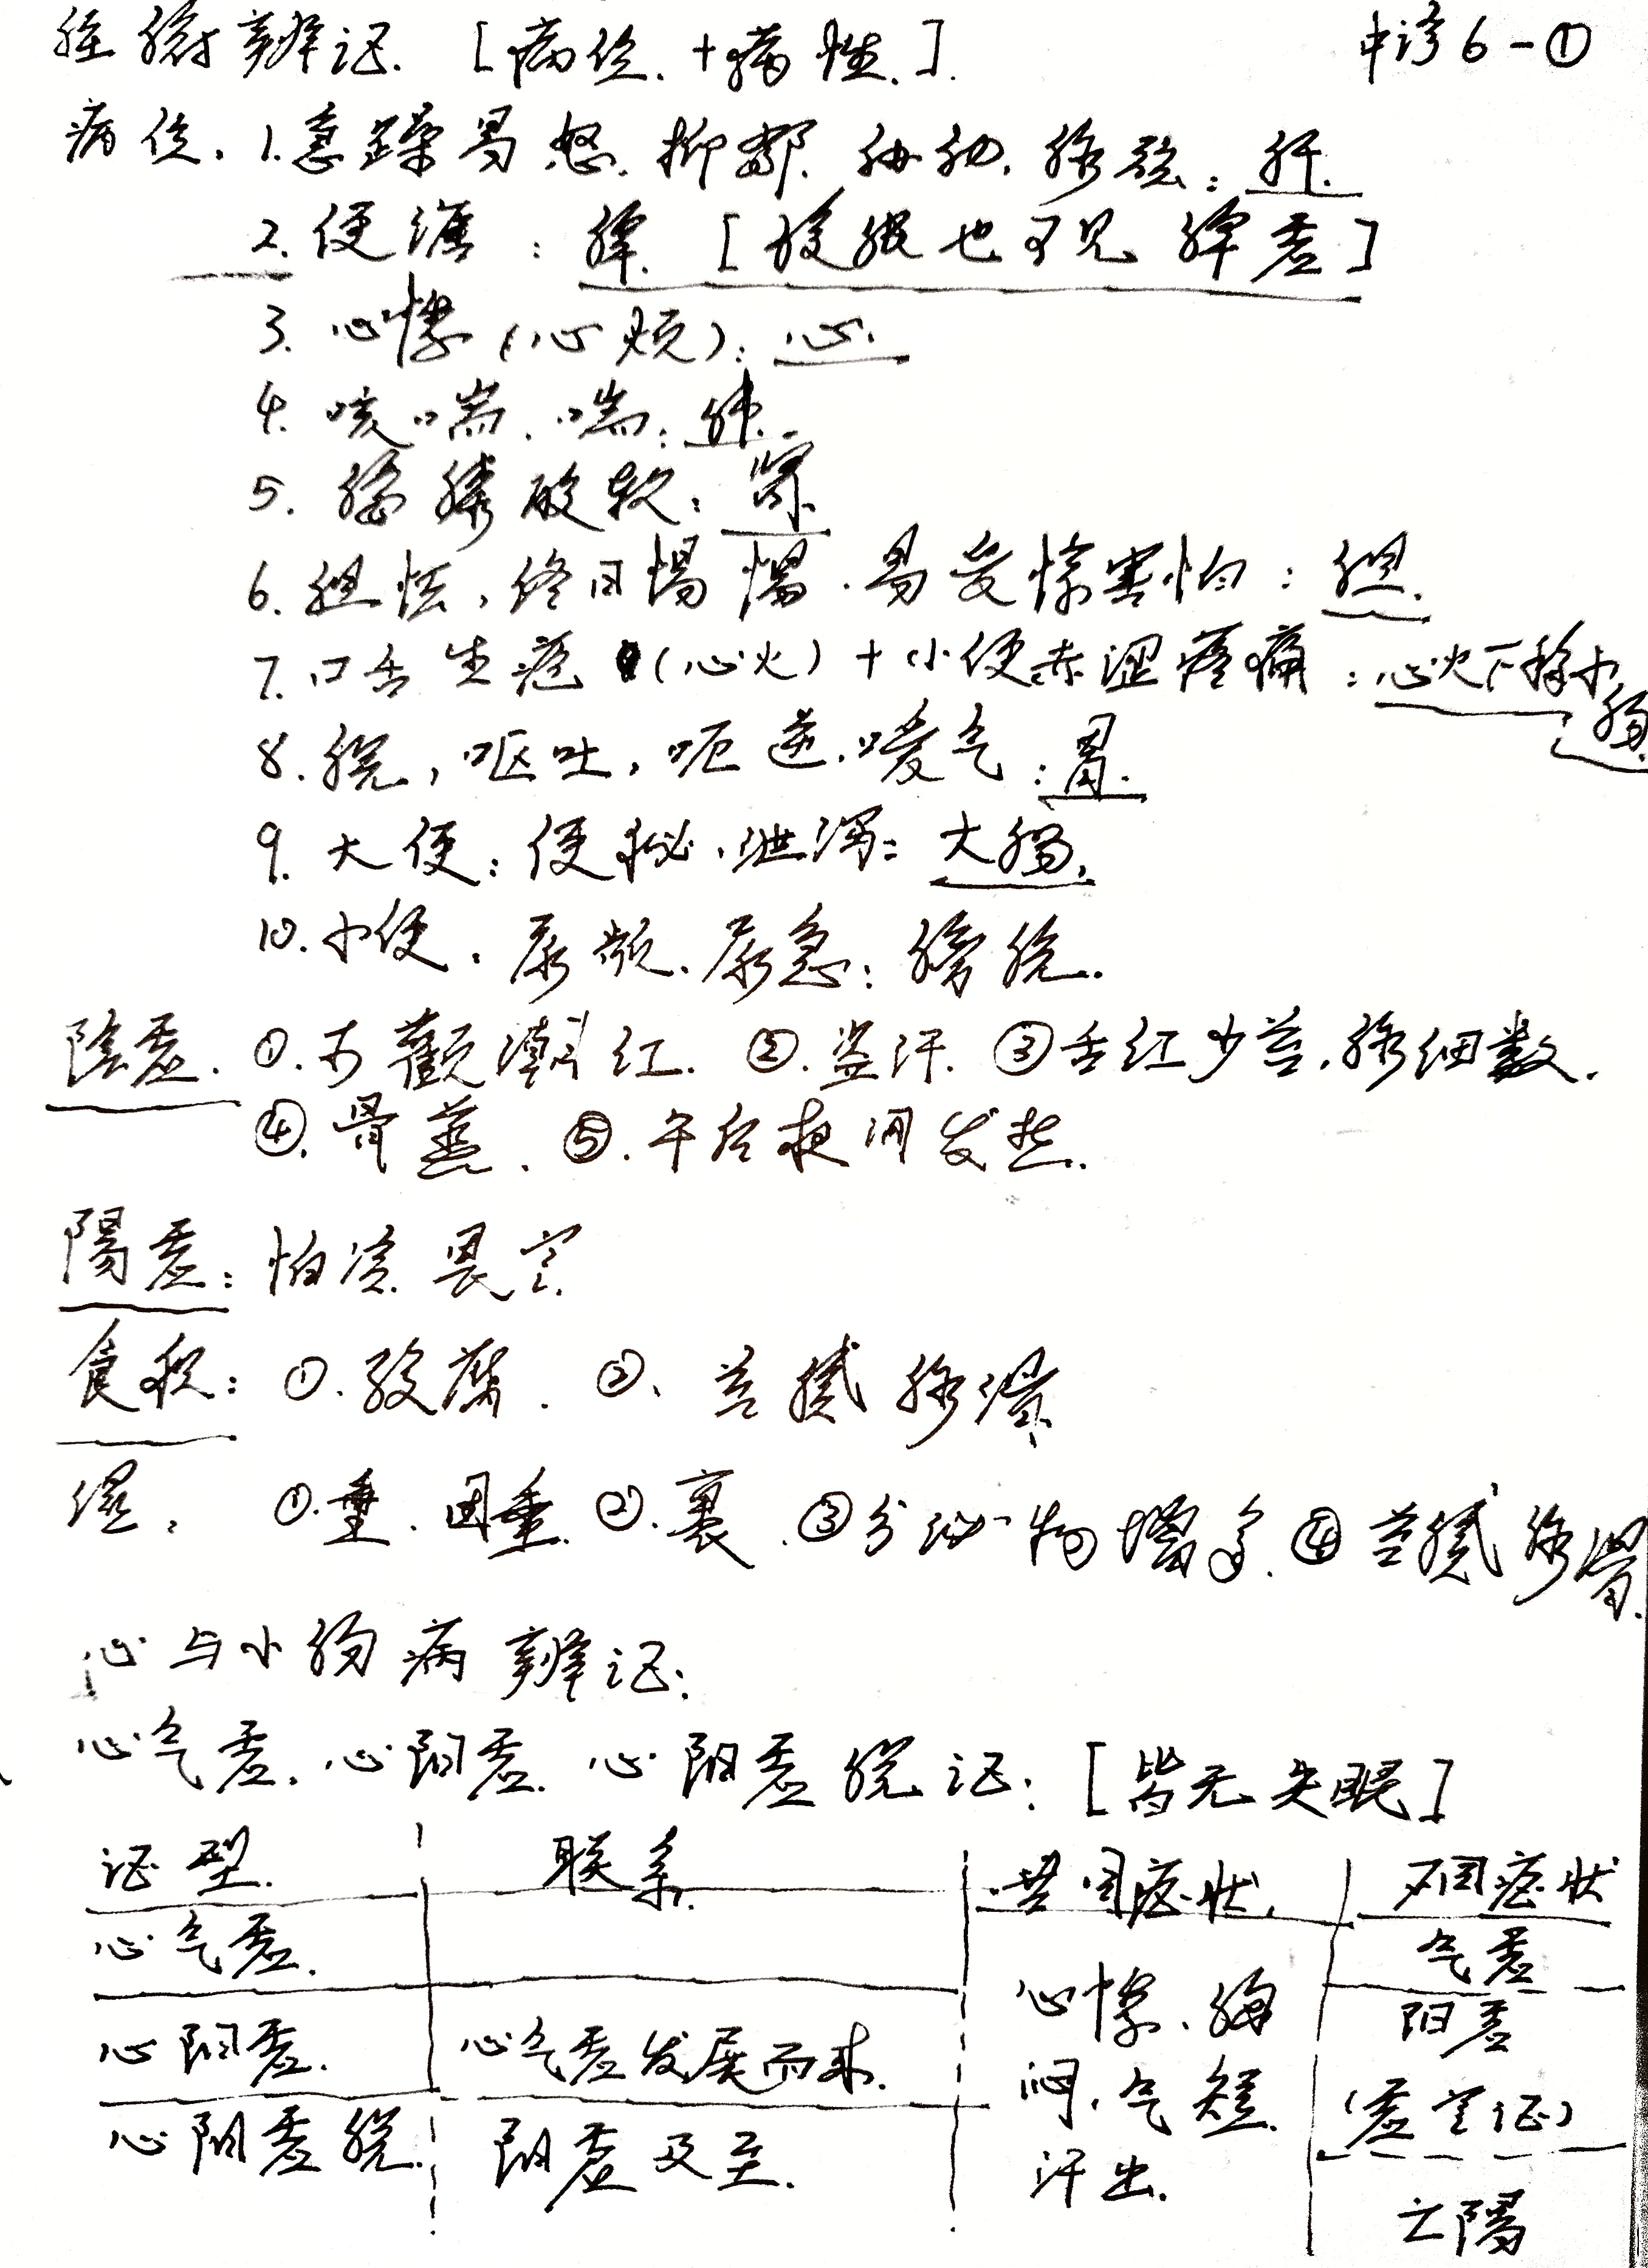 脏腑辨证. [病位.+病性.]. 中诊6-①
病位. 1.急躁易怒. 抑郁. 胁肋. 脉弦: 肝.
2.便溏: 脾. [腹胀也可见 脾虚]
3. 心悸(心烦): 心.
4. 咳喘. 喘: 肺.
5. 腰膝酸软: 肾
6. 胆怯, 终日惕惕. 易受惊害怕: 胆.
7. 口舌生疮 (心火)+小便赤涩疼痛: 心火下移小肠.
8. 脘, 呕吐, 呃逆. 嗳气: 胃.
9. 大便: 便秘. 泄泻: 大肠.
10. 小便. 尿频. 尿急: 膀胱.
陰虚. ①. 两颧潮红. ②. 盗汗. ③舌红少苔. 脉细数.
④. 骨蒸. ⑤. 午后夜间发热.
陽虚: 怕凉 畏寒
食积: ①. 酸腐. ②. 苔腻 脉滑
湿. ①. 重. 困重. ②. 裹. ③分泌物增多. ④苔腻脉滑.
心与小肠病辨证:
心气虚. 心阳虚. 心阳虚脱证: [皆无失眠]
证型. 联系. 共同症状. 不同症状
心气虚. 气虚
心阳虚. 心气虚发展而来. 心悸. 胸闷. 气短. 汗出. 阳虚 (虚寒证)
心阳虚脱. 阳虚及至. 亡陽